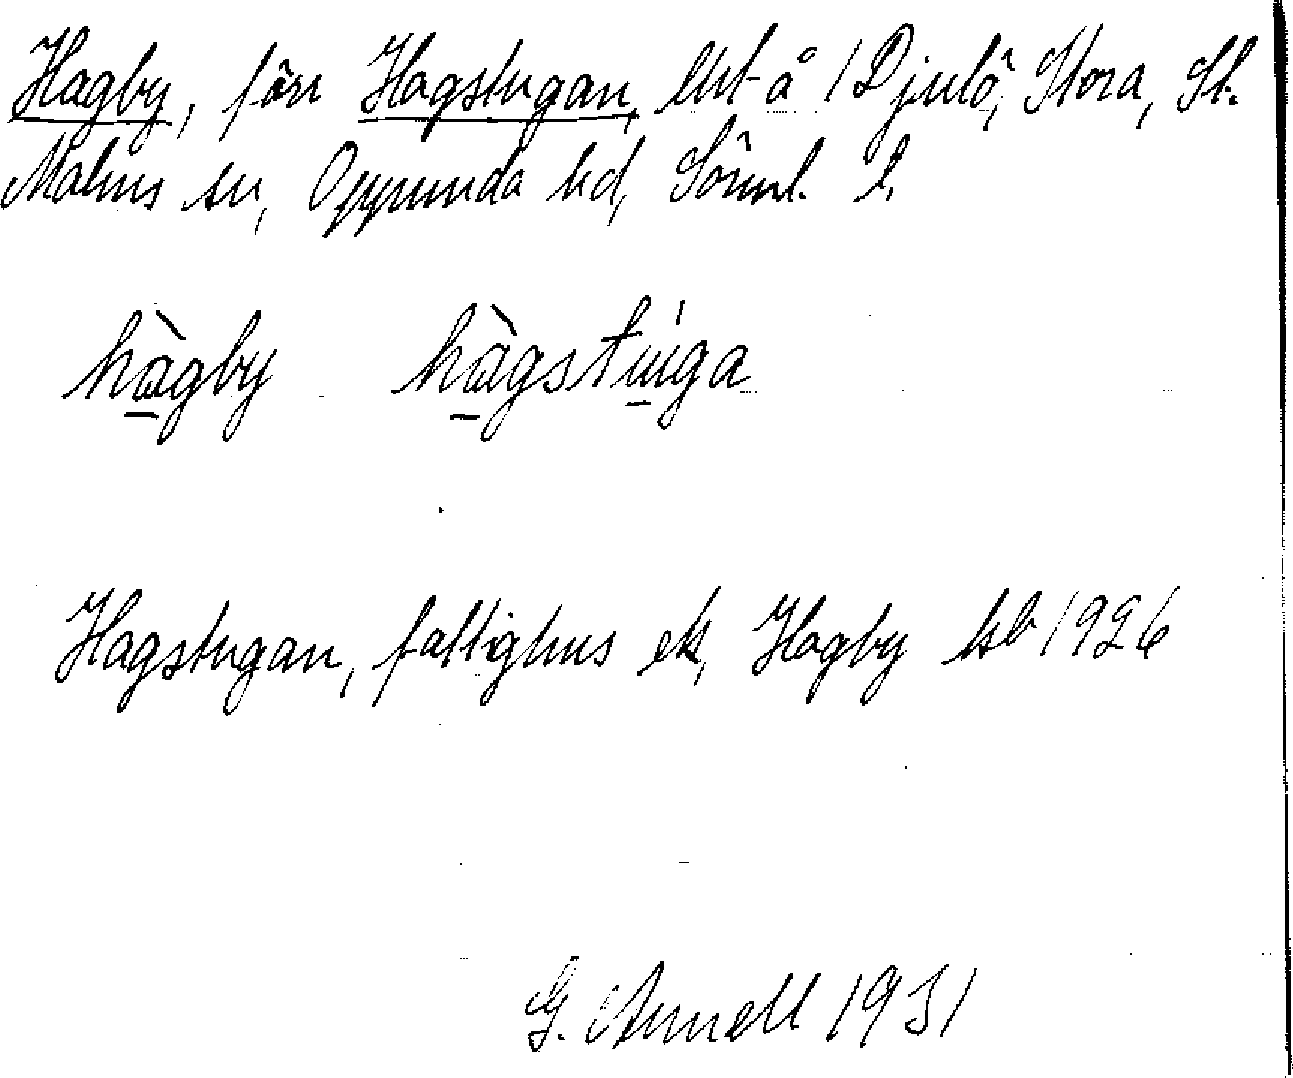 Hagby, förr Hagstugan, lht å 1 Djulö, Stora, St.
Malms sn, Oppunda hd, Sörml. l.
hàgby hàgstúga
Hagstugan, fattighus ek, Hagby kb 1926
G. Arnell 1931